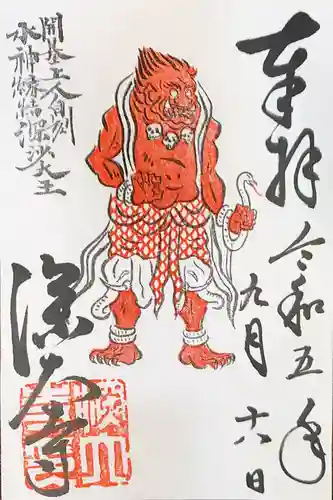 奉拝
令和五年
九月六日
開基上人
水神縁結深沙大王
深大寺